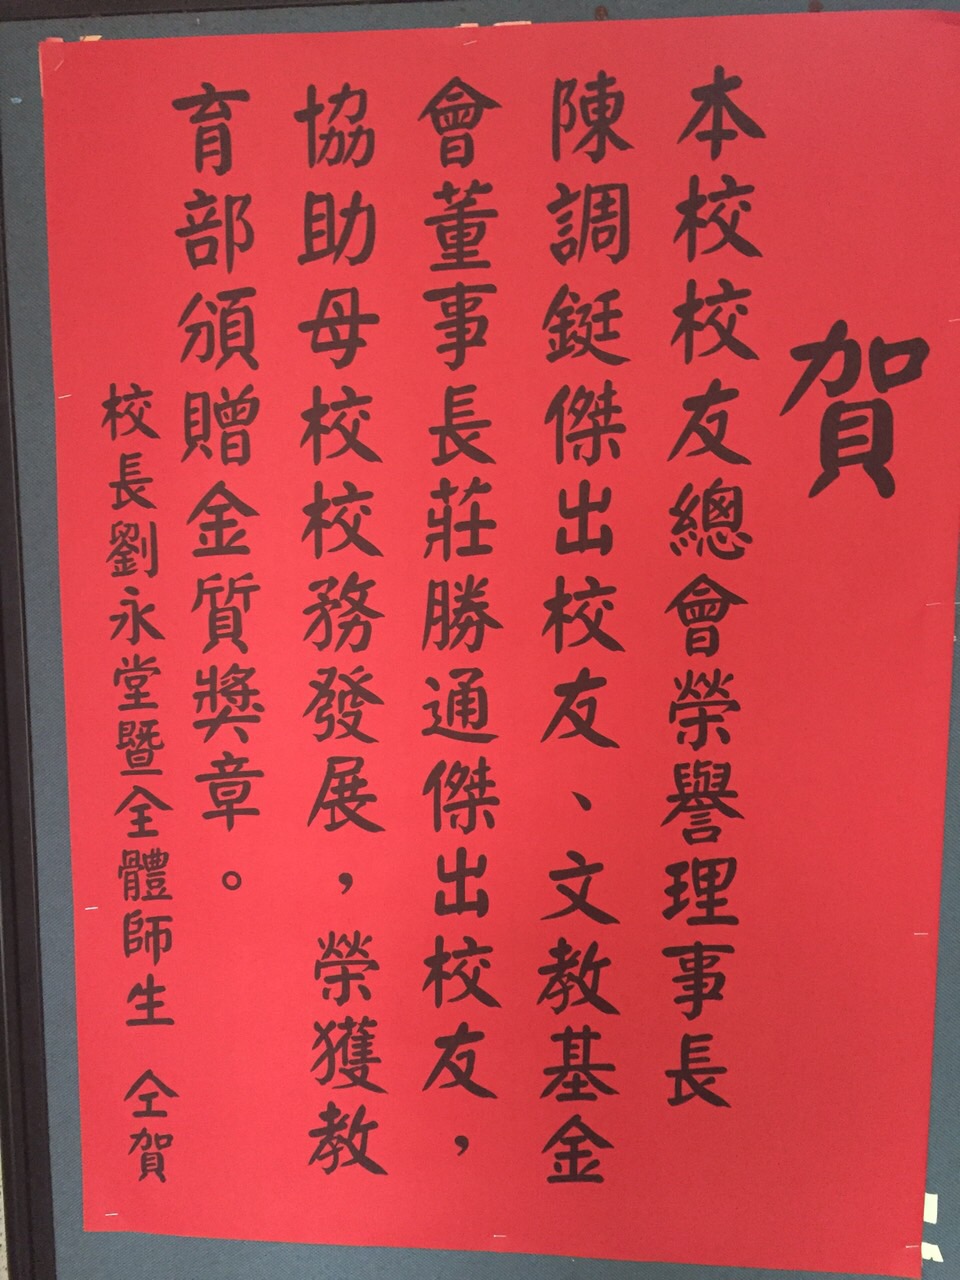 賀
本校校友總會榮譽理事長
陳調鋌傑出校友、文教基金
會董事長莊勝通傑出校友，
協助母校校務發展，榮獲教
育部頒贈金質獎章。
校長劉永堂暨全體師生 仝賀